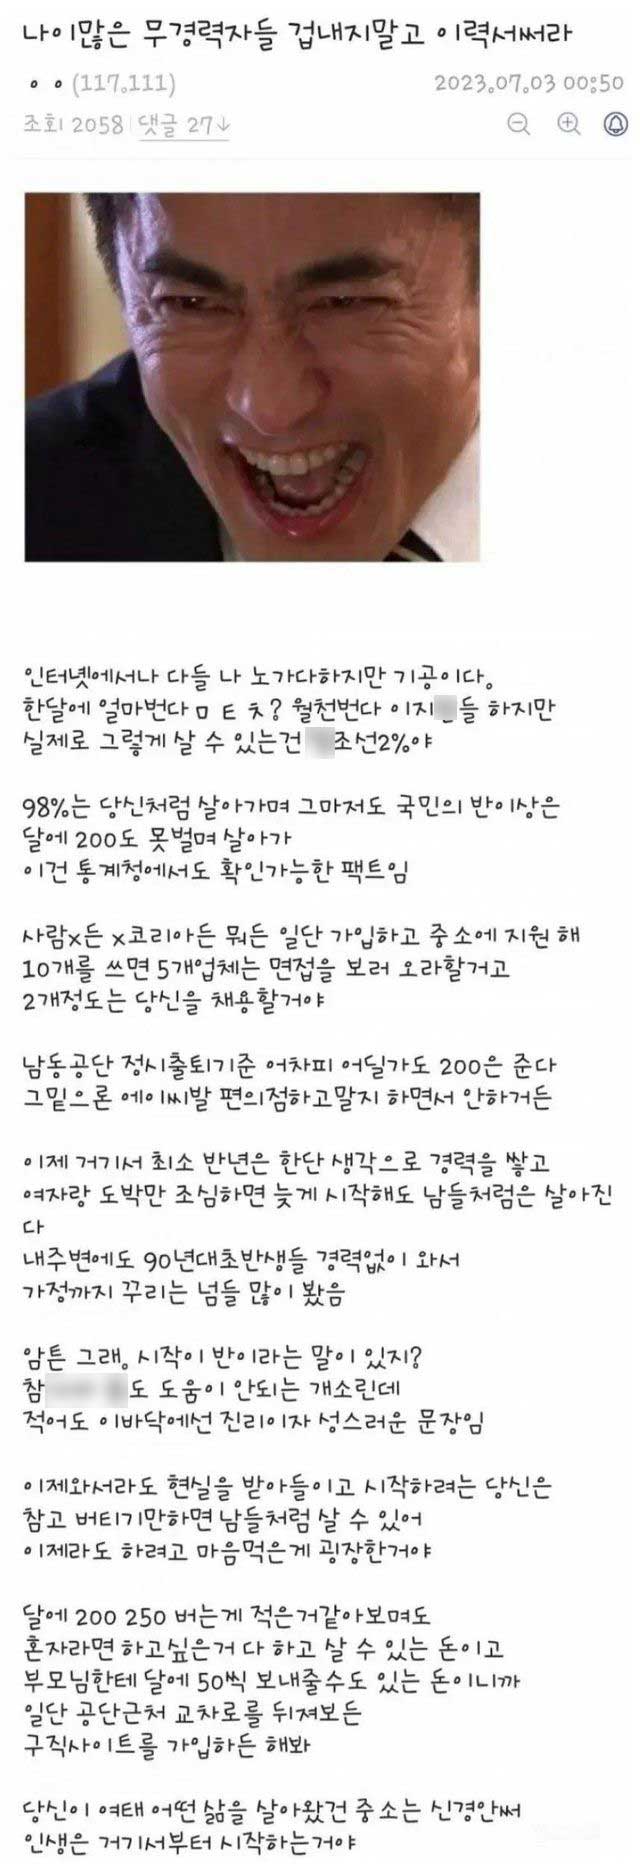 나이많은 무경력자들 겁내지말고 이력서써라
ㅇㅇ(117.111)
2023.07.03 00:50
조회 2058 댓글 27↓
인터넷에서나 다들 나 노가다하지만 기공이다.
한달에 얼마번다 ㅁㅌㅊ? 월천번다 이지 들 하지만
실제로 그렇게 살 수 있는건 조선2%야
98%는 당신처럼 살아가며 그마저도 국민의 반이상은
달에 200도 못벌며 살아가
이건 통계청에서도 확인가능한 팩트임
사람x든 x코리아든 뭐든 일단 가입하고 중소에 지원 해
10개를 쓰면 5개업체는 면접을 보러 오라할거고
2개정도는 당신을 채용할거야
남동공단 정시출퇴기준 어차피 어딜가도 200은 준다
그밑으론 에이씨발 편의점하고말지 하면서 안하거든
이제 거기서 최소 반년은 한단 생각으로 경력을 쌓고
여자랑 도박만 조심하면 늦게 시작해도 남들처럼은 살아진
다
내주변에도 90년대초반생들 경력없이 와서
가정까지 꾸리는 넘들 많이 봤음
암튼 그래. 시작이 반이라는 말이 있지?
참 도 도움이 안되는 개소린데
적어도 이바닥에선 진리이자 성스러운 문장임
이제와서라도 현실을 받아들이고 시작하려는 당신은
참고 버티기만하면 남들처럼 살 수 있어
이제라도 하려고 마음먹은게 굉장한거야
달에 200 250 버는게 적은거같아보며도
혼자라면 하고싶은거 다 하고 살 수 있는 돈이고
부모님한테 달에 50씩 보내줄수도 있는 돈이니까
일단 공단근처 교차로를 뒤져보든
구직사이트를 가입하든 해봐
당신이 여태 어떤 삶을 살아왔건 중소는 신경안써
인생은 거기서부터 시작하는거야